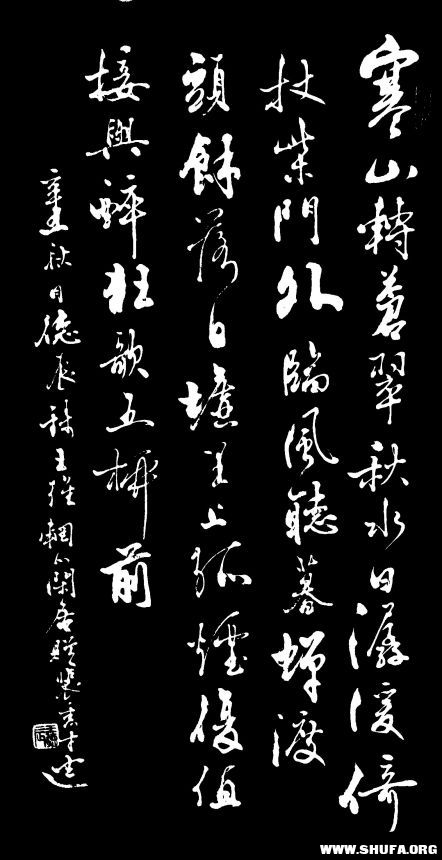 寒山轉蒼翠秋水日潺湲倚
杖柴門外臨風聽暮蟬渡
頭餘落日墟里上孤煙復值
接與醉狂歌五柳前
秋月德辰錄王維輞川閑居贈裴秀才迪
WWW.SHUFA.ORG